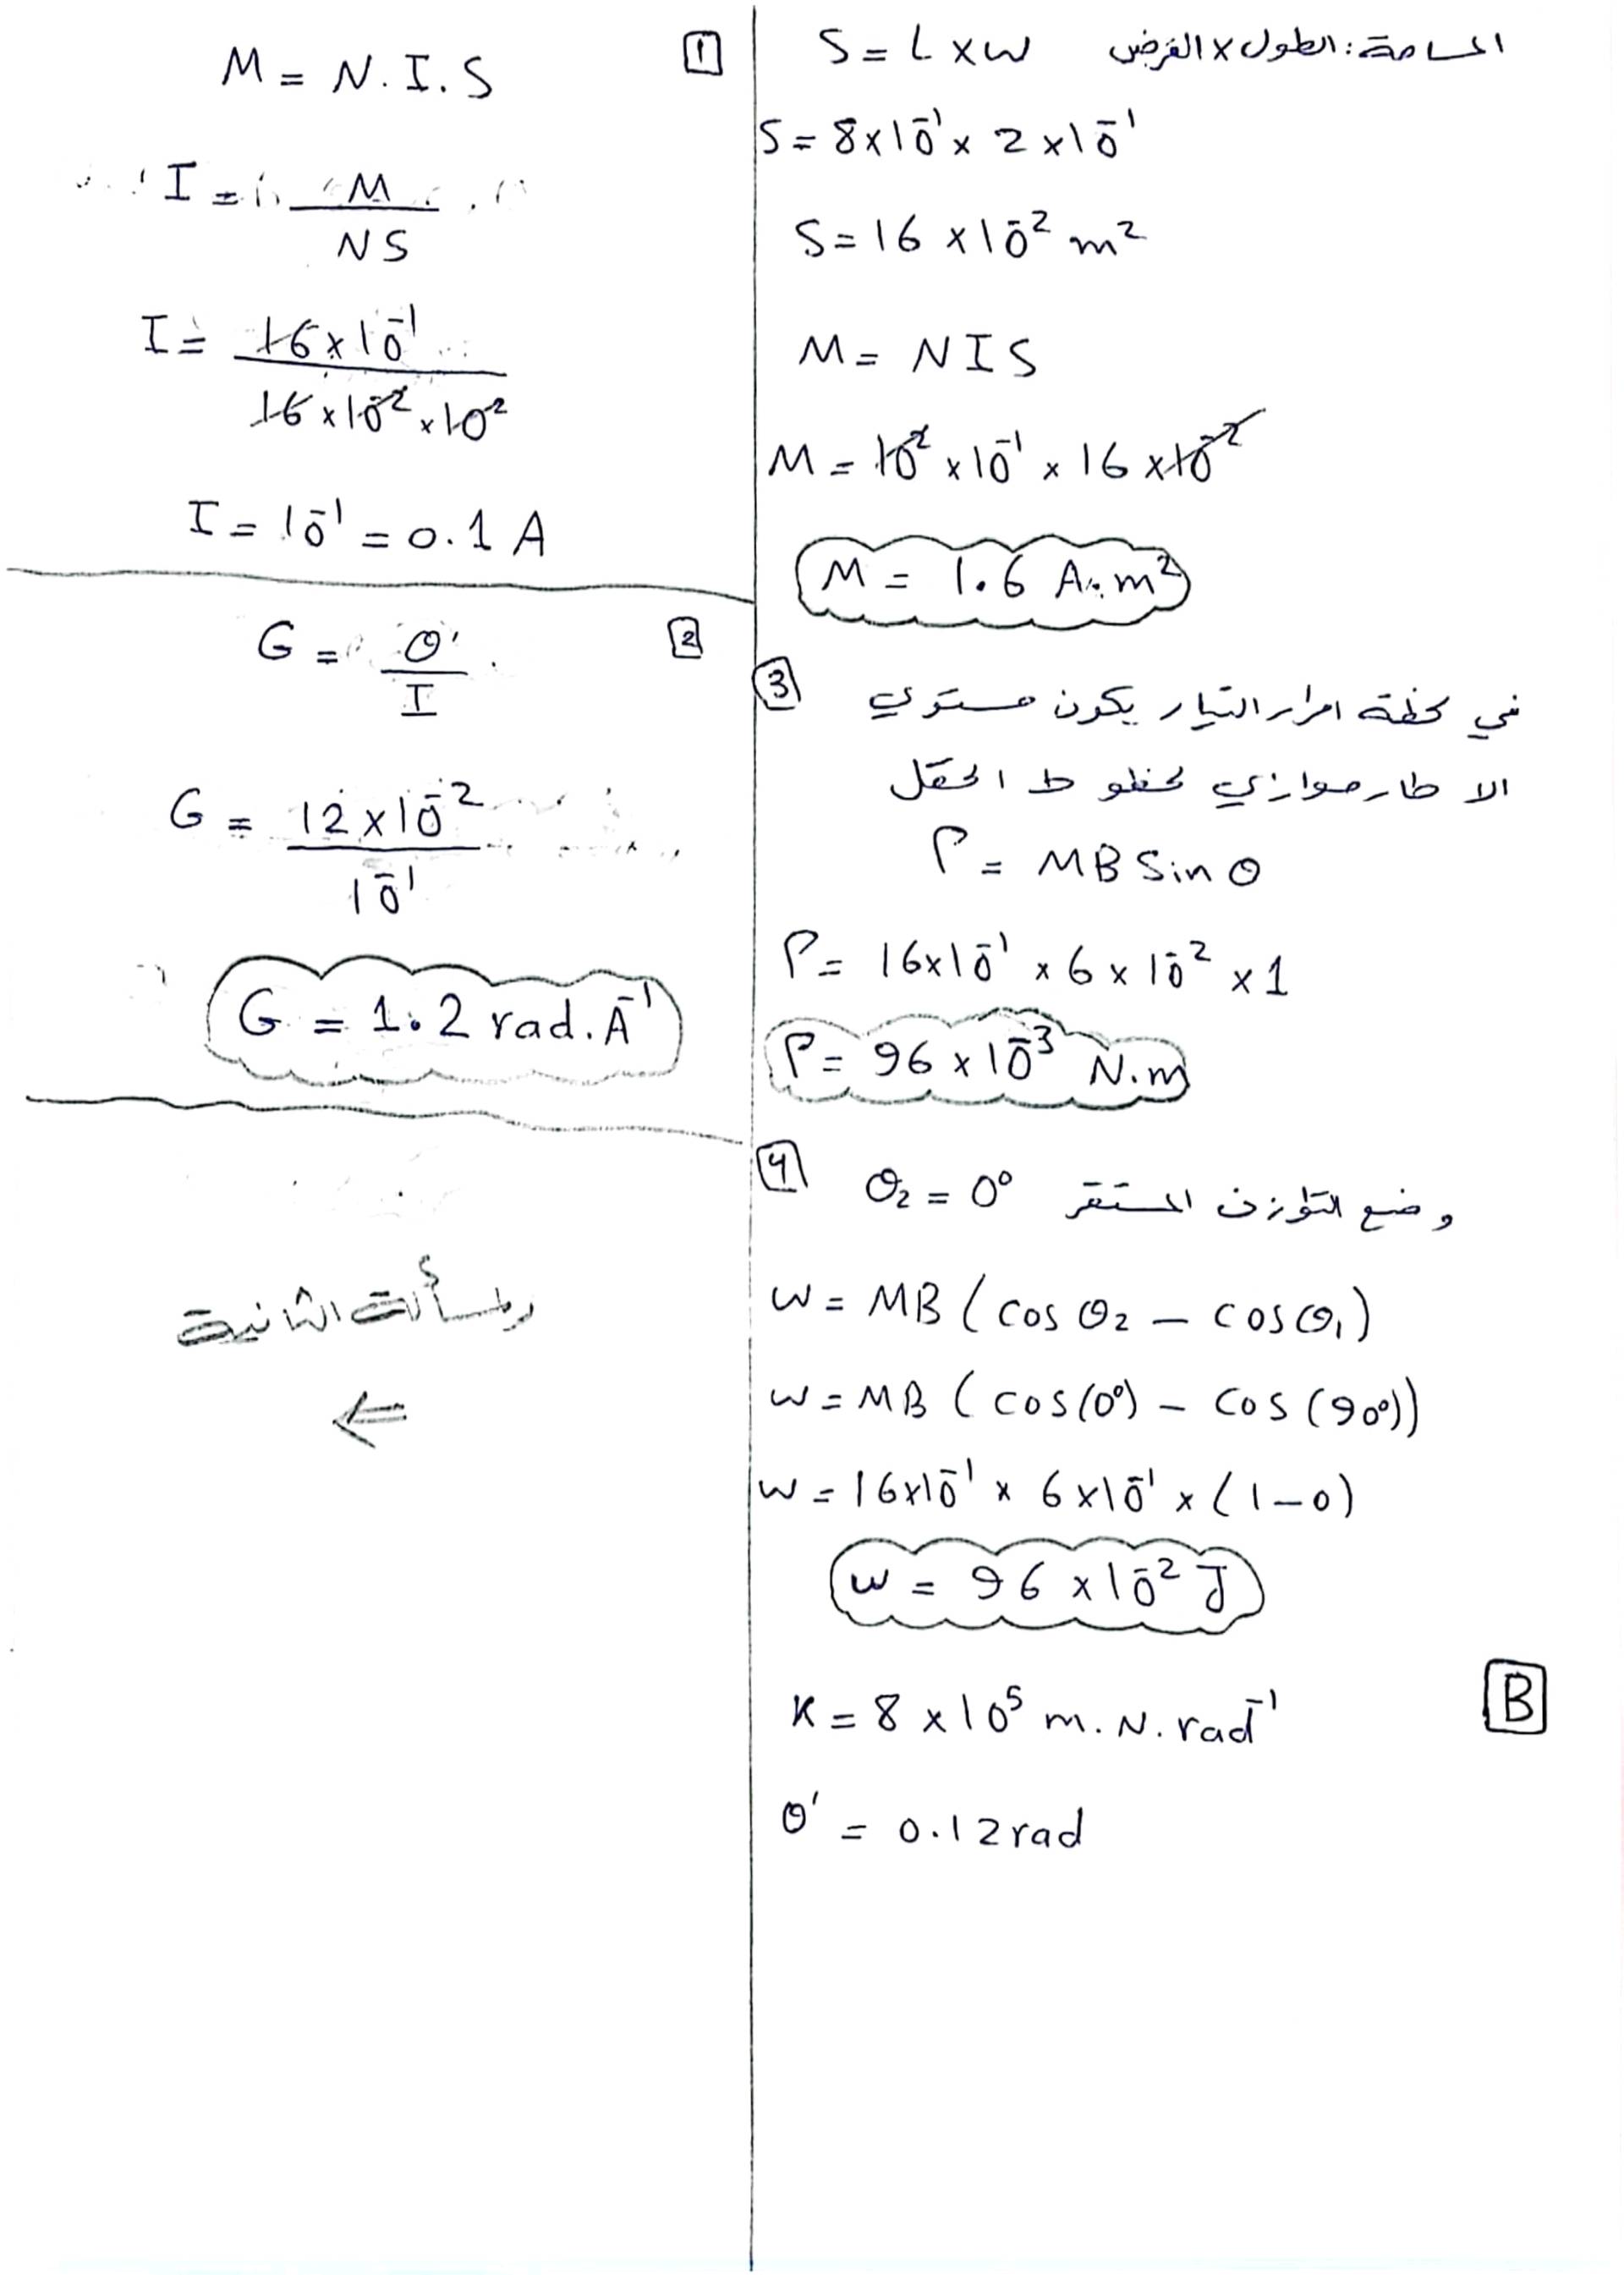 المساحة: الطول × العرض S = L × W
S = 8×10⁻¹ × 2×10⁻¹
S = 16 × 10⁻² m²
M = NIS
M = 10² × 10⁻¹ × 16 × 10⁻²
M = 1.6 A.m²
3 في لحظة امرار التيار يكون مستوي
الاطار موازي لخطوط الحقل
Γ = MB Sin θ
Γ = 16×10⁻¹ × 6 × 10⁻² × 1
Γ = 96 × 10⁻³ N.m
4 θ₂ = 0° وضع التوازن المستقر
W = MB (cos θ₂ − cos θ₁)
W = MB (cos(0°) − cos(90°))
W = 16×10⁻¹ × 6×10⁻¹ × (1−0)
W = 96 × 10⁻² J
B
K = 8 × 10⁵ m.N.rad⁻¹
θ' = 0.12 rad
1 M = N.I.S
I = M / NS
I = 16×10⁻¹ / 16×10⁻²×10²
I = 10⁻¹ = 0.1 A
2 G = θ' / I
G = 12×10⁻² / 10⁻¹
G = 1.2 rad.A⁻¹
المسألة الثانية
←